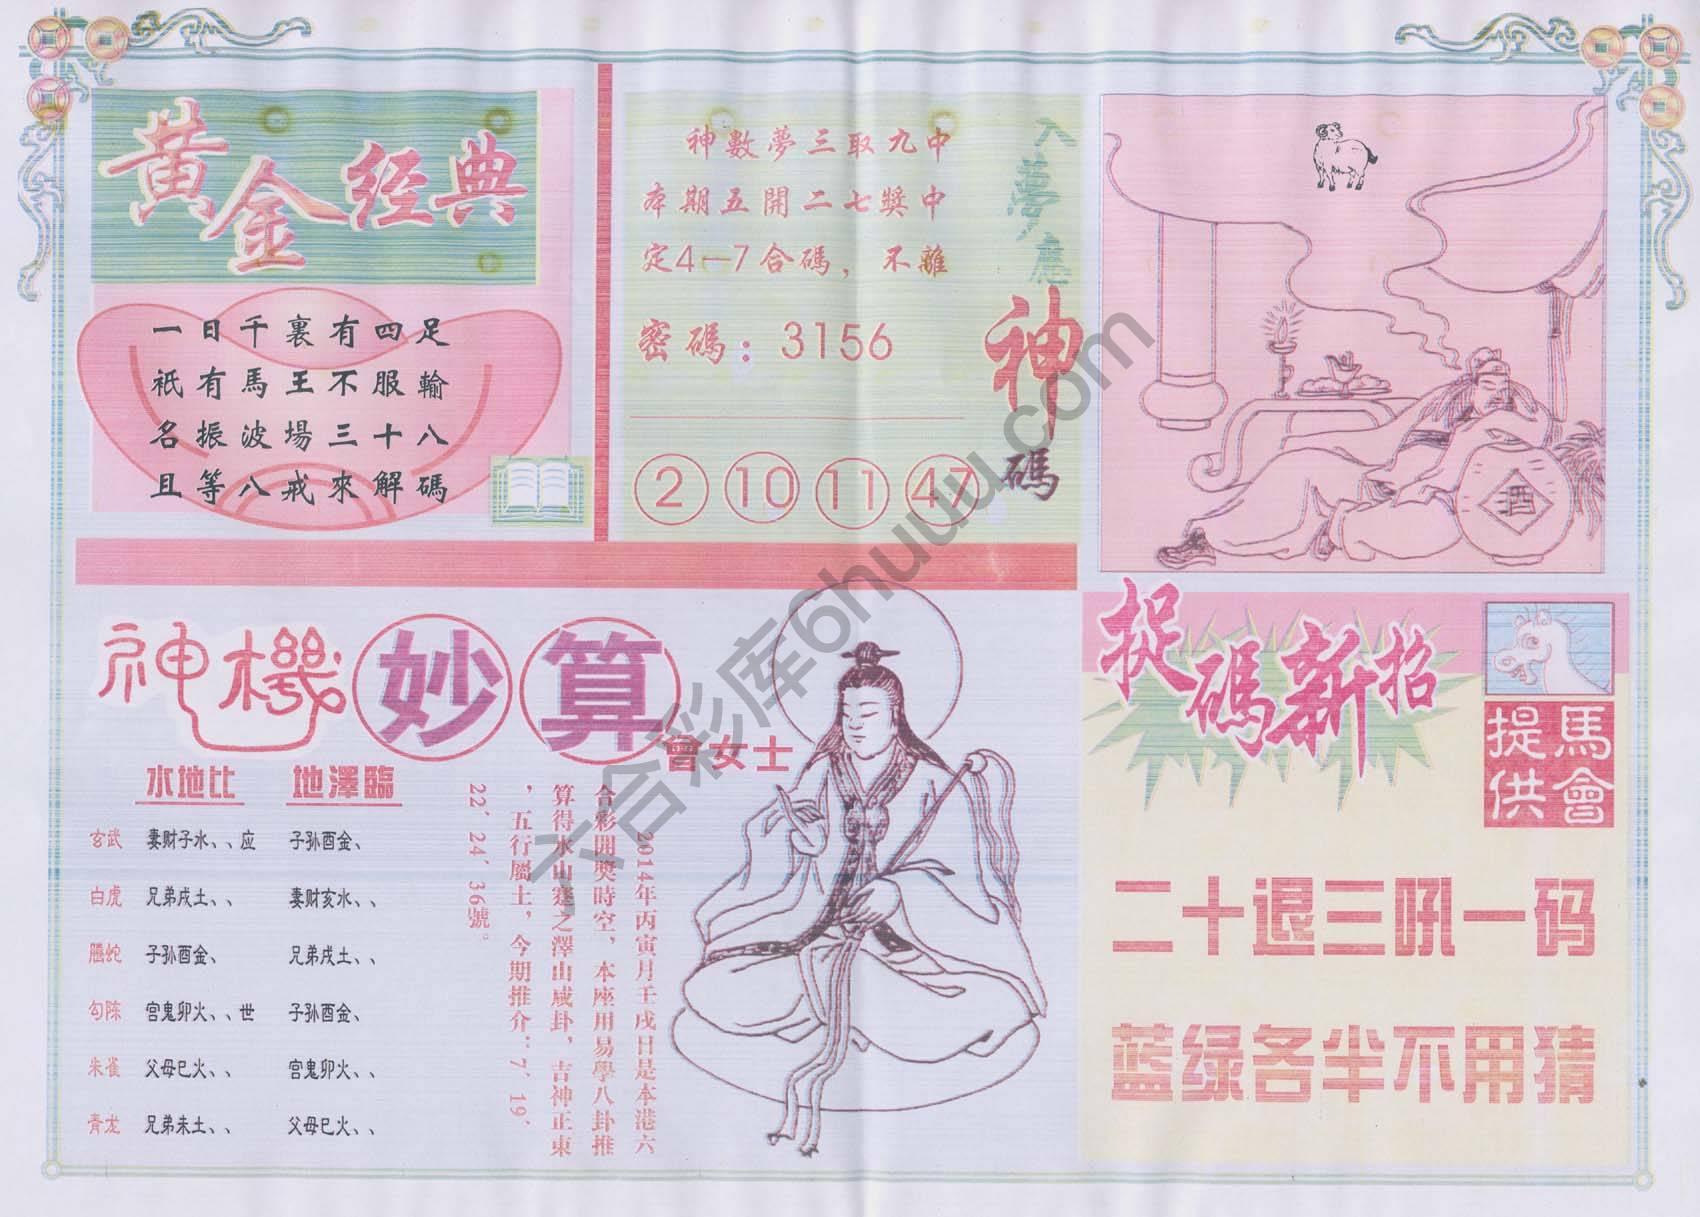 黄金经典
一日千裏有四足
祇有馬王不服輸
名振波場三十八
且等八戒來解碼
神數夢三取九中
本期五開二七獎中
定4—7合碼，不離
密碼：3156
2 10 11 47
入夢應
神
碼
酒
神機妙算
曾女士
水地比 地澤臨
玄武 妻财子水、、应 子孙酉金、
白虎 兄弟戌土、、 妻财亥水、、
螣蛇 子孙酉金、 兄弟戌土、、
勾陈 官鬼卯火、、世 子孙酉金、
朱雀 父母巳火、、 官鬼卯火、、
青龙 兄弟未土、、 父母巳火、、
2014年丙寅月壬戌日是本港六
合彩開獎時空，本座用易學八卦推
算得水山蹇之澤山咸卦，吉神正東
，五行屬土，今期推介：7、19、
22、24、36號。
捉碼新招
馬會
提供
二十退三吼一码
蓝绿各半不用猜
六合彩库6huuu.com